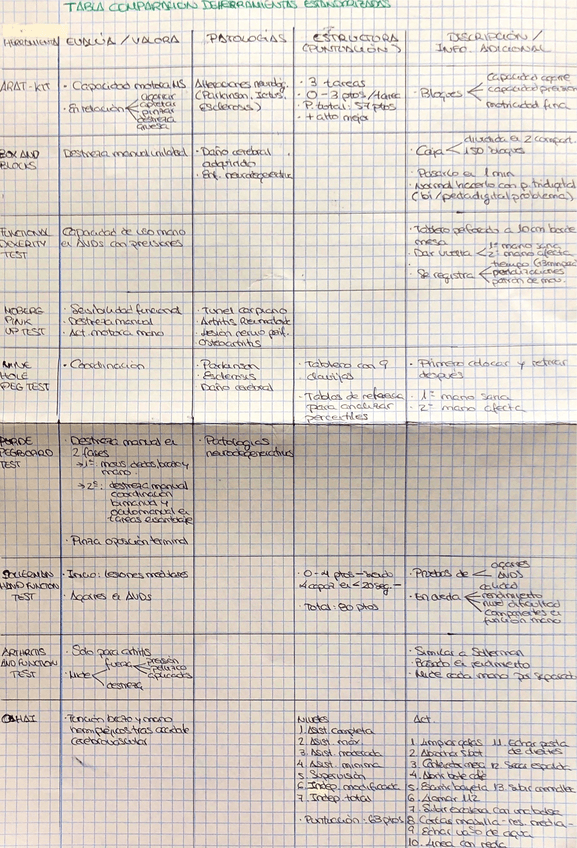 TABLA COMPARACIÓN DE HERRAMIENTAS ESTANDARIZADAS
HERRAMIENTA
EVALÚA / VALORA
PATOLOGÍAS
ESTRUCTURA
(PUNTUACIÓN)
DESCRIPCIÓN /
INFO. ADICIONAL
ARAT-KIT
· Capacidad motora MS
· En relación
agarrar
apretar
pinzar
destreza
gruesa
Alteraciones neurolog.
(Parkinson, Ictus,
Esclerosis)
· 3 tareas
· 0-3 ptos/tarea
· P. total: 57 ptos
· + alto mejor
· Bloques
capacidad agarre
capacidad presion
motricidad fina
BOX AND
BLOCKS
Destreza manual unilateral
· Daño cerebral
adquirido
· Enf. neurodegenerativa
· Caja
dividida en 2 compart.
150 bloques
· Pasarlo en 1 min
· Normal hacerlo con p. tridigital
(bi/pentadigital problema)
FUNCTIONAL
DEXERITY
TEST
Capacidad de uso mano
en AVDS con precisiones
· Tablero perforado a 10cm borde
mesa
· Dar vuelta
1º mano sana
2º mano afecta
· Se registra
tiempo
penalizaciones
patron de mov.
MOBERG
PINK
UP TEST
· Sensibilidad funcional
· Destreza manual
· Act. motora mano
· Tunel carpiano
· Artritis Reumatoide
· Lesión nervio perf.
· Osteoartritis
NINE
HOLE
PEG TEST
· Coordinación
· Parkinson
· Esclerosis
· Daño cerebral
· Tablero con 9
clavijas
· Tablas de referencia
para analizar
percentiles
· Primero colocar y retirar
después
· 1º mano sana
· 2º mano afecta
PURDE
PEGBOARD
TEST
· Destreza manual en
2 fases
→ 1º: movs dedos brazo y
mano
→ 2º: destreza manual
coordinación
bimanual y
oculomanual en
tareas ensamblaje
· Pinza oposición terminal
· Patologias
neurodegenerativas
SOLLERMAN
HAND FUNCTION
TEST
· Inicio: lesiones medulares
· Agarres en AVDS
· 0-4 ptos - siendo
4 capaz en <20 seg -
· Total: 80 ptos
· Pruebas de
agarres
AVDS
· En cada
calidad
rendimiento
nivel dificultad
componentes en
función mano
ARTHRITIS
HAND FUNCTION
TEST
· Solo para artritis
· Mide
fuerza
presión
aplicadas
destreza
· Similar a Sollerman
· Basado en rendimiento
· Mide cada mano por separado
CAHAI
· Función brazo y mano
hemipléjicos tras accidente
cerebrovascular
Niveles
1. Asist completa
2. Asist máx
3. Asist moderada
4. Asist mínima
5. Supervisión
6. Indep. modificada
7. Indep. total
· Puntuación: 63 ptos
Act
1. Limpiar gafas 11. Echar pasta
de dientes
2. Abrocharse 5 bot
3. Cremallera 12. Secar espalda
4. Abrir bote café
5. Escurrir bayeta 13. Subir cremallera
6. Llamar 112
7. Subir escalera con una bolsa
8. Cortar masilla - res. media -
9. Echar vaso de agua
10. Línea con regla